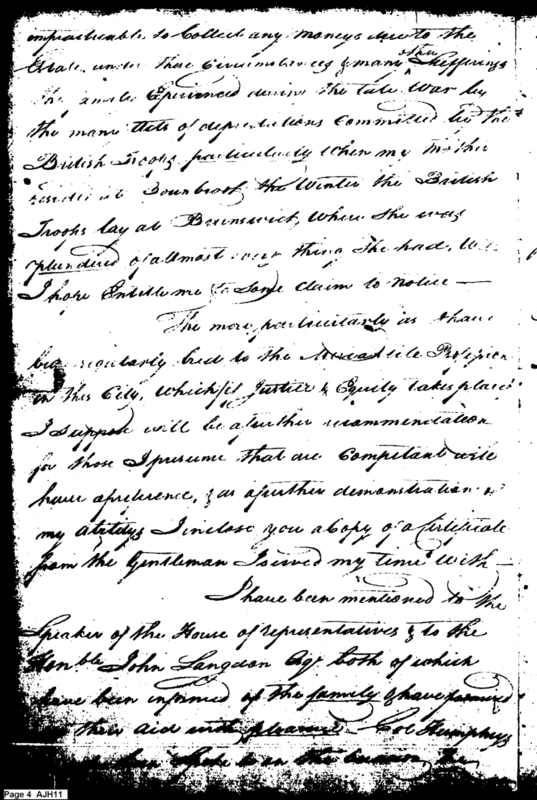 impracticable to Collect any moneys due to the
Estate under those Circumstances & many other Sufferings
the Experienced during the late War by
the many Acts of depredations Committed by the
British Troops particularly when my Mother
resided at Bounbrook the Winter the British
Troops lay at Brunswick, where she was
plundered of allmost every thing she had, Will
I hope Entitle me to some claim to notice —
The more particularly as I have
been regularly bred to the Mercantile Profession
in this City, which if Justice & Equity takes place
I suppose will be a further recommendation
for those I presume that are Competant will
have a preference, & as a further demonstration of
my abilitys I inclose you a Copy of a Certificate
from the Gentleman I served my time with —
I have been mentioned to the
Speaker of the House of representatives & to the
Honble John Langdon Esqr both of which
have been informed of the family & have promised
their aid with pleasure — Col Humphrys
been Spoke to on the business, the
Page 4 AJH11